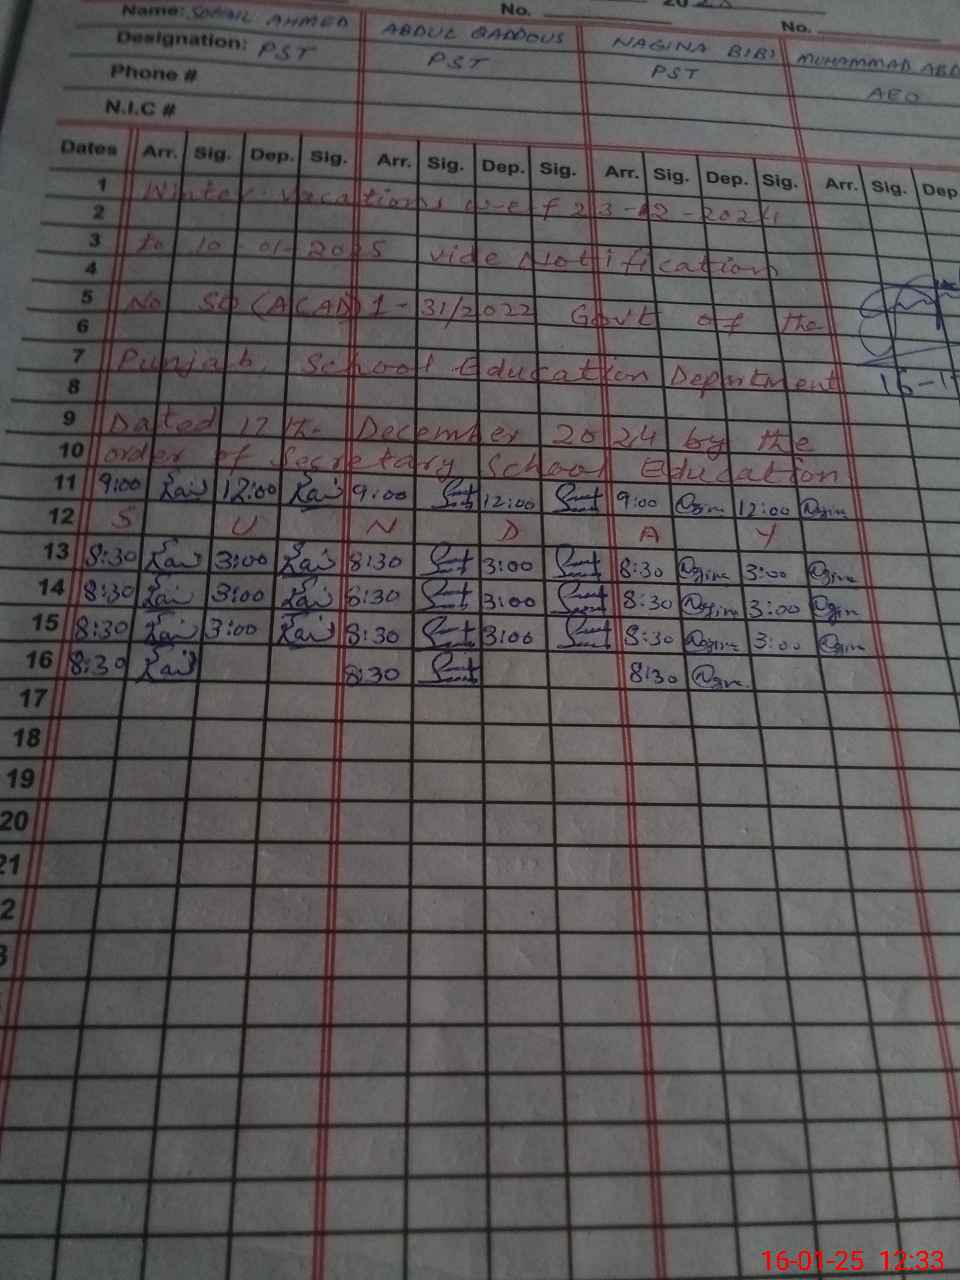 No. 20
No.
Name: SOHAIL AHMED ABDUL QADDOUS NAGINA BIBI MUHAMMAD ABD
Designation: PST PST PST AEO
Phone #
N.I.C #
Dates Arr. Sig. Dep. Sig. Arr. Sig. Dep. Sig. Arr. Sig. Dep. Sig. Arr. Sig. Dep
1 Winter Vacations w-e-f 23-12-2024
2
3 to 10-01-2025 vide Notification
4
5 No SO (ACAD) 1-31/2022 Govt of the
6
7 Punjab, School Education Department
8 16-1
9 Dated 17th December 2024 by the
10 order of Secretary School Education
11 9:00 12:00 9:00 12:00 9:00 12:00
12 S U N D A Y
13 8:30 3:00 8:30 3:00 8:30 3:00
14 8:30 3:00 8:30 3:00 8:30 3:00
15 8:30 3:00 8:30 3:00 8:30 3:00
16 8:30 8:30 8:30
17
18
19
20
21
2
3
16-01-25 12:33